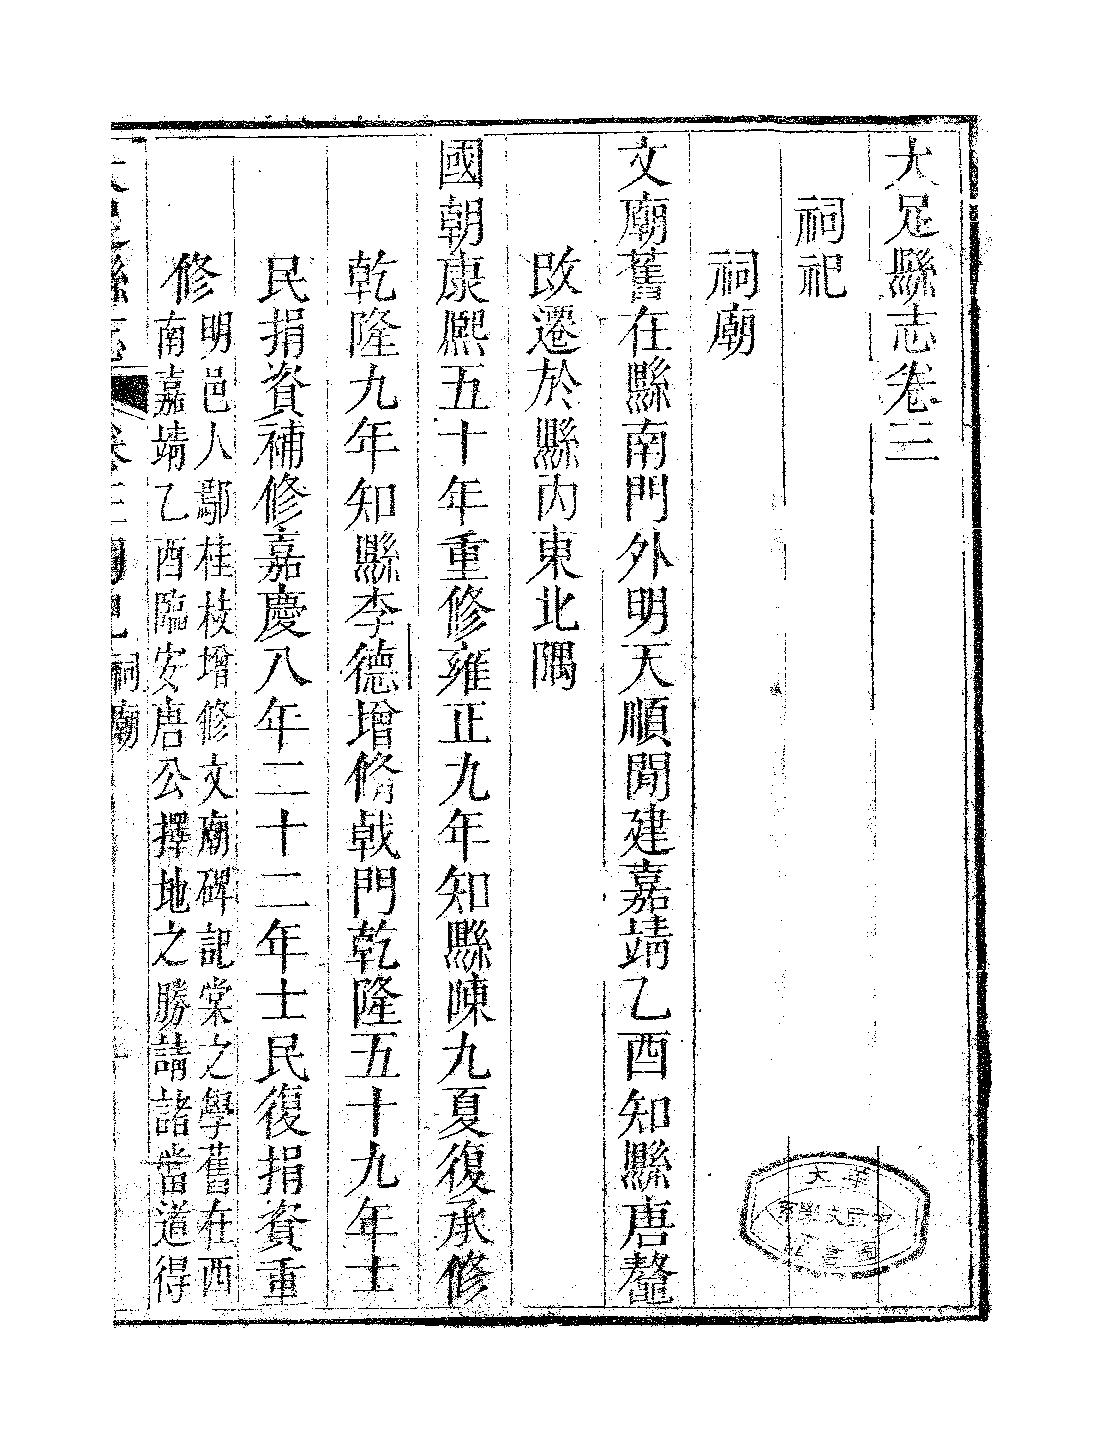 大足縣志卷三
祠祀
祠廟
文廟舊在縣南門外明天順間建嘉靖乙酉知縣唐鼇
改遷於縣内東北隅
國朝康熙五十年重修雍正九年知縣陳九夏復承修
乾隆九年知縣李德增脩戟門乾隆五十九年士
民捐資補修嘉慶八年二十二年士民復捐資重
修
明邑人鄢桂枝增修文廟碑記棠之學舊在西
南嘉靖乙酉臨安唐公擇地之勝請諸當道得
大足縣志 卷三 祠祀 祠廟